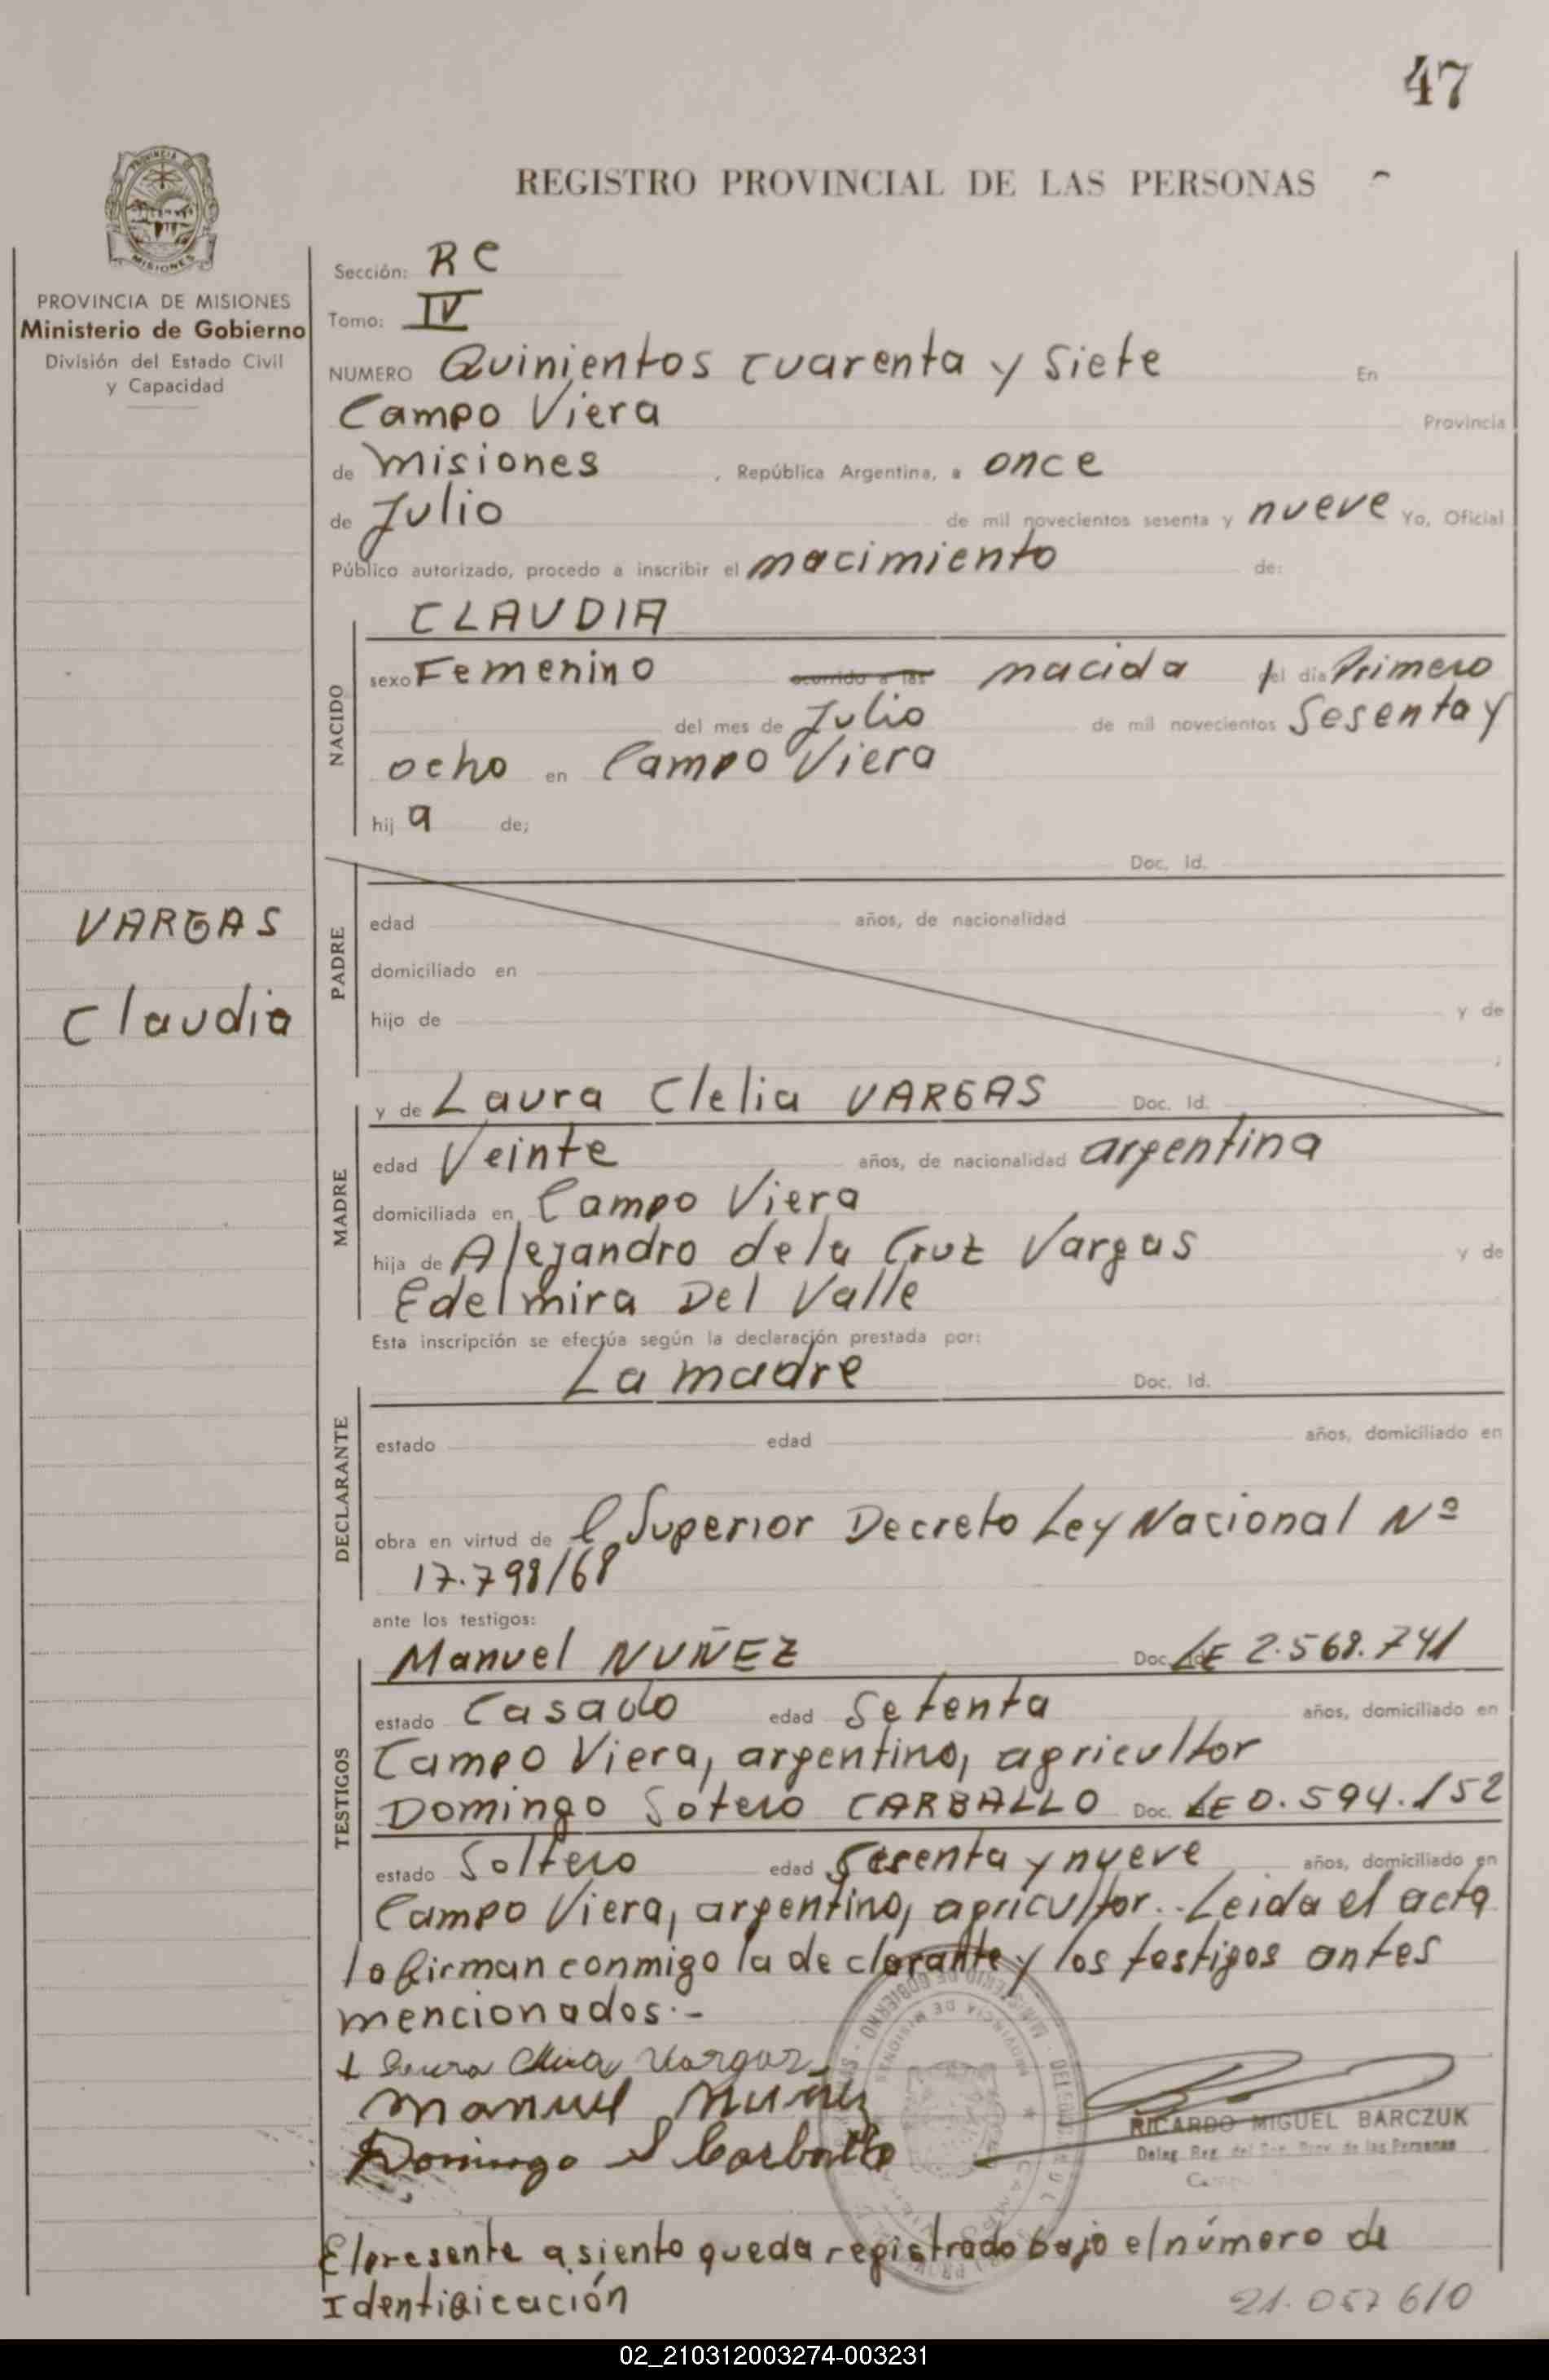 47
REGISTRO PROVINCIAL DE LAS PERSONAS
PROVINCIA DE MISIONES
Ministerio de Gobierno
División del Estado Civil
y Capacidad
Sección: RC
Tomo: IV
NUMERO Quinientos cuarenta y siete En
Campo Viera Provincia
de misiones , República Argentina, a once
de Julio de mil novecientos sesenta y nueve Yo, Oficial
Público autorizado, procedo a inscribir el nacimiento de:
NACIDO
CLAUDIA
sexo Femenino ocurrido a las nacida el día Primero
del mes de Julio de mil novecientos Sesenta y
ocho en Campo Viera
hij a de;
VARGAS
Claudia
PADRE
Doc. Id.
edad años, de nacionalidad
domiciliado en
hijo de y de
;
MADRE
y de Laura Clelia VARGAS Doc. Id.
edad Veinte años, de nacionalidad argentina
domiciliada en Campo Viera
hija de Alejandro dela Cruz Vargas y de
Edelmira Del Valle
Esta inscripción se efectúa según la declaración prestada por:
DECLARANTE
La madre Doc. Id.
estado edad años, domiciliado en
obra en virtud de l Superior Decreto Ley Nacional Nº
17.798/68
ante los testigos:
TESTIGOS
Manuel NUÑEZ Doc. LE 2.568.741
estado Casado edad Setenta años, domiciliado en
Campo Viera, argentino, agricultor
Domingo Sotero CARBALLO Doc. LE 0.594.152
estado Soltero edad Sesenta y nueve años, domiciliado en
Campo Viera, argentino, agricultor.. Leida el acta
la firman conmigo la declarante y los testigos antes
mencionados.-
Laura Vargas
Manuel Nuñez
Domingo S Carballo
RICARDO MIGUEL BARCZUK
Deleg. Reg. de las Personas
MINISTERIO DE GOBIERNO
PROVINCIA DE MISIONES
El presente asiento queda registrado bajo el número de
Identificación 21.057610
02_210312003274-003231